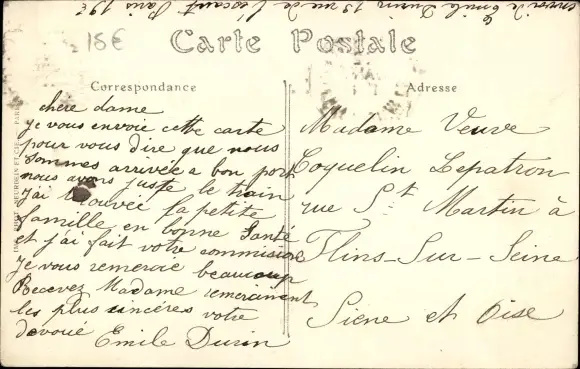 envoi de Emile Durin 13 rue de l'escaut Paris 19e
18€
Carte Postale
Correspondance
Adresse
chere dame
je vous envoie cette carte
pour vous dire que nous
sommes arrivée a bon port
nous avons juste le train
J'ai trouvée la petite
famille en bonne Santé
et j'ai fait votre commission
Je vous remercie beaucoup
Recevez Madame remerciment
les plus sincéres votre
devoué Emile Durin
Madame Veuve
Coquelin Lepatron
rue St Martin à
Flins-Sur-Seine
Siene et Oise